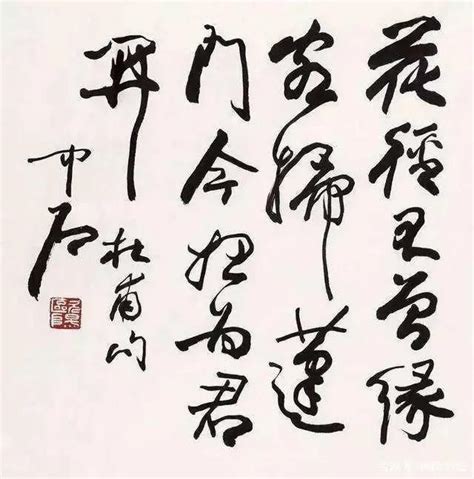 花徑不曾緣
客掃蓬
門今始為君
開
杜甫句
中石